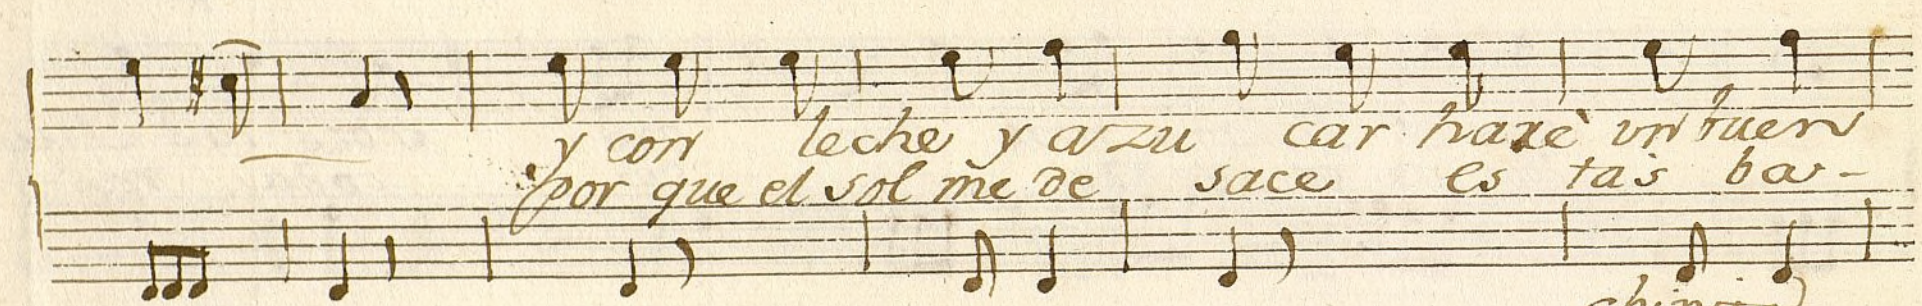 y con leche y a zu car haxè un buen
por que el sol me de sace es tas ba-